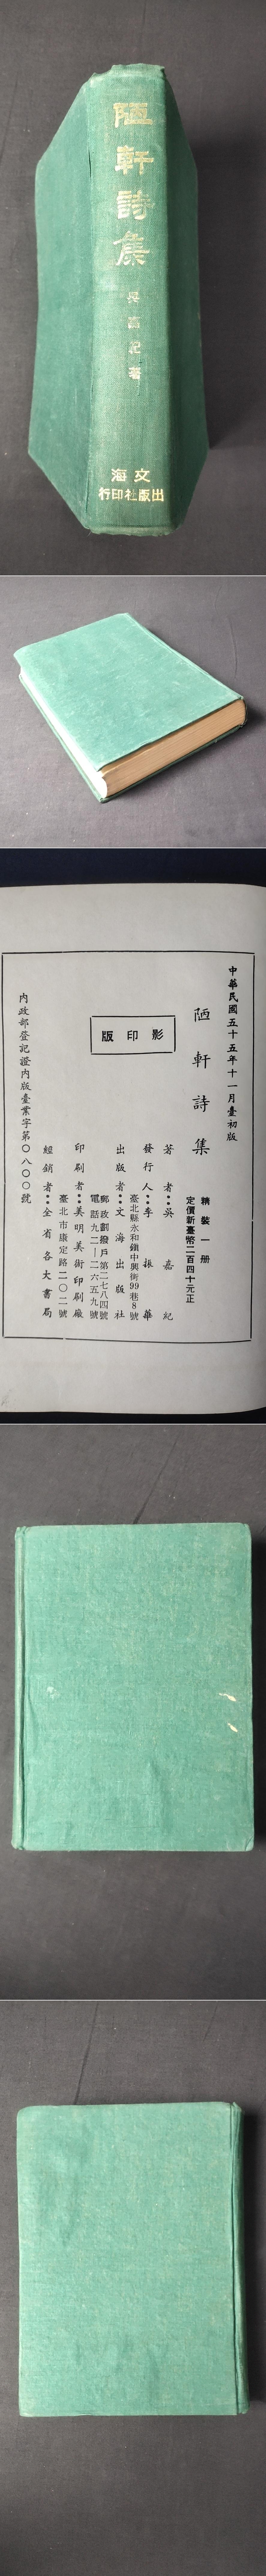 陋軒詩集
吳嘉紀著
文海
出版社印行
中華民國五十五年十一月臺初版
陋軒詩集
精裝一册
定價新臺幣二百四十元正
影印版
著者：吳嘉紀
發行人：李振華
臺北縣永和鎮中興街99巷8號
出版者：文海出版社
郵政劃撥戶第二七八四號
電話九二一二六五九號
印刷者：美明美術印刷廠
臺北市康定路二〇二號
經銷者：全省各大書局
內政部登記證內版臺業字第〇八〇〇號